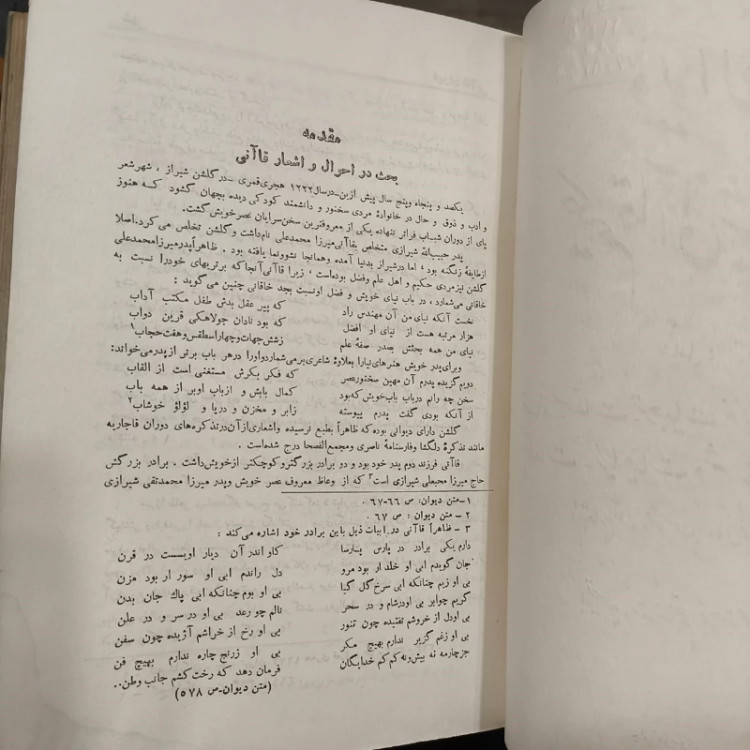 مقدمه
بحث در احوال و اشعار قاآنی
یکصد و پنجاه وپنج سال پیش ازین-درسال۱۲۲۲ هجری‌قمری -در گلشن شیراز ، شهرشعر
و ادب و ذوق و حال در خانوادهٔ مردی سخنور و دانشمند کودکی دیده بجهان گشود که هنوز
پای از دوران شباب فراتر ننهاده یکی از معروفترین سخن‌سرایان عصرخویش گشت.
پدر حبیب‌الله شیرازی متخلص بقاآنی میرزا محمدعلی نام‌داشت و گلشن تخلص می‌کرد.اصلا
ازطایفهٔ زنگنه بود ؛ اما درشیراز بدنیا آمده وهمانجا نشوونما یافته بود . ظاهراً پدرمیرزامحمدعلی
گلشن نیزمردی حکیم و اهل علم وفضل بوده‌است ، زیرا قاآنی‌آنجاکه برتریهای خودرا نسبت به
خاقانی می‌شمارد ، در باب نیای خویش و فضل اونسبت بجد خاقانی چنین می‌گوید :
نخست آنکه نیای من آن مهندس راد که پیر عقل بدش طفل مکتب آداب
هزار مرتبه هست از نیای او افضل که بود نادان جولاهکی قرین دواب
نیای من همه بحثش بصدر صفهٔ علم زشش‌جهات‌وچهاراسطقس‌وهفت‌حجاب۱
وبرای‌پدر خویش هنرهای‌نیارا بعلاوهٔ شاعری‌برمی‌شماردواورا درهر باب برتر ازپدرمی‌خواند:
دویم‌گزیده پدرم آن مهین سخنورعصر که فکر بکرش مستغنی است از القاب
سخن چه رانم درباب باب‌خویش‌که‌بود کمال بابش و ازباب اوبر از همه باب
از آنکه بودی گفت پدرم پیوسته زابر و مخزن و دریا و لؤلؤ خوشاب۲
گلشن دارای دیوانی بوده‌که ظاهراً بطبع نرسیده واشعاری‌ازآن‌درتذکره‌های دوران قاجاریه
مانند تذکرهٔ دلگشا وفارسنامهٔ ناصری ومجمع‌الفصحا درج شده‌است .
قاآنی فرزند دوم پدر خود بود و دو برادر بزرگترو کوچکتر ازخویش‌داشت . برادر بزرگش
حاج میرزا محبعلی شیرازی است۳ که از وعاظ معروف عصر خویش وپدر میرزا محمدتقی شیرازی
۱-متن دیوان، ص ۶۶-۶۷ .
۲ - متن دیوان ؛ ص ۶۷ .
۳ - ظاهراً قاآنی در ابیات ذیل باین برادر خود اشاره می‌کند :
دارم یکی برادر در پارس پارسا کاو اندر آن دیار اویست در قرن
جان گویدم ابی او خلد ار بود مرو دل راندم ابی او سور ار بود مزن
بی او زیم چنانکه ابی سرخ گل گیا بی او بوم چنانکه ابی پاك جان بدن
گریم چوابر بی اودرشام و در سحر نالم چو رعد بی او در سر و در علن
بی اودل از خروشم تفتیده چون تنور بی او رخ از خراشم آژیده چون سفن
بی او زغم گزیر ندارم بهیچ مکر بی او زرنج چاره ندارم بهیچ فن
جزچارمه نه بیش‌ونه‌کم کم خدایگان فرمان دهد که رخت کشم جانب وطن..
(متن دیوان-ص ۵۷۸)